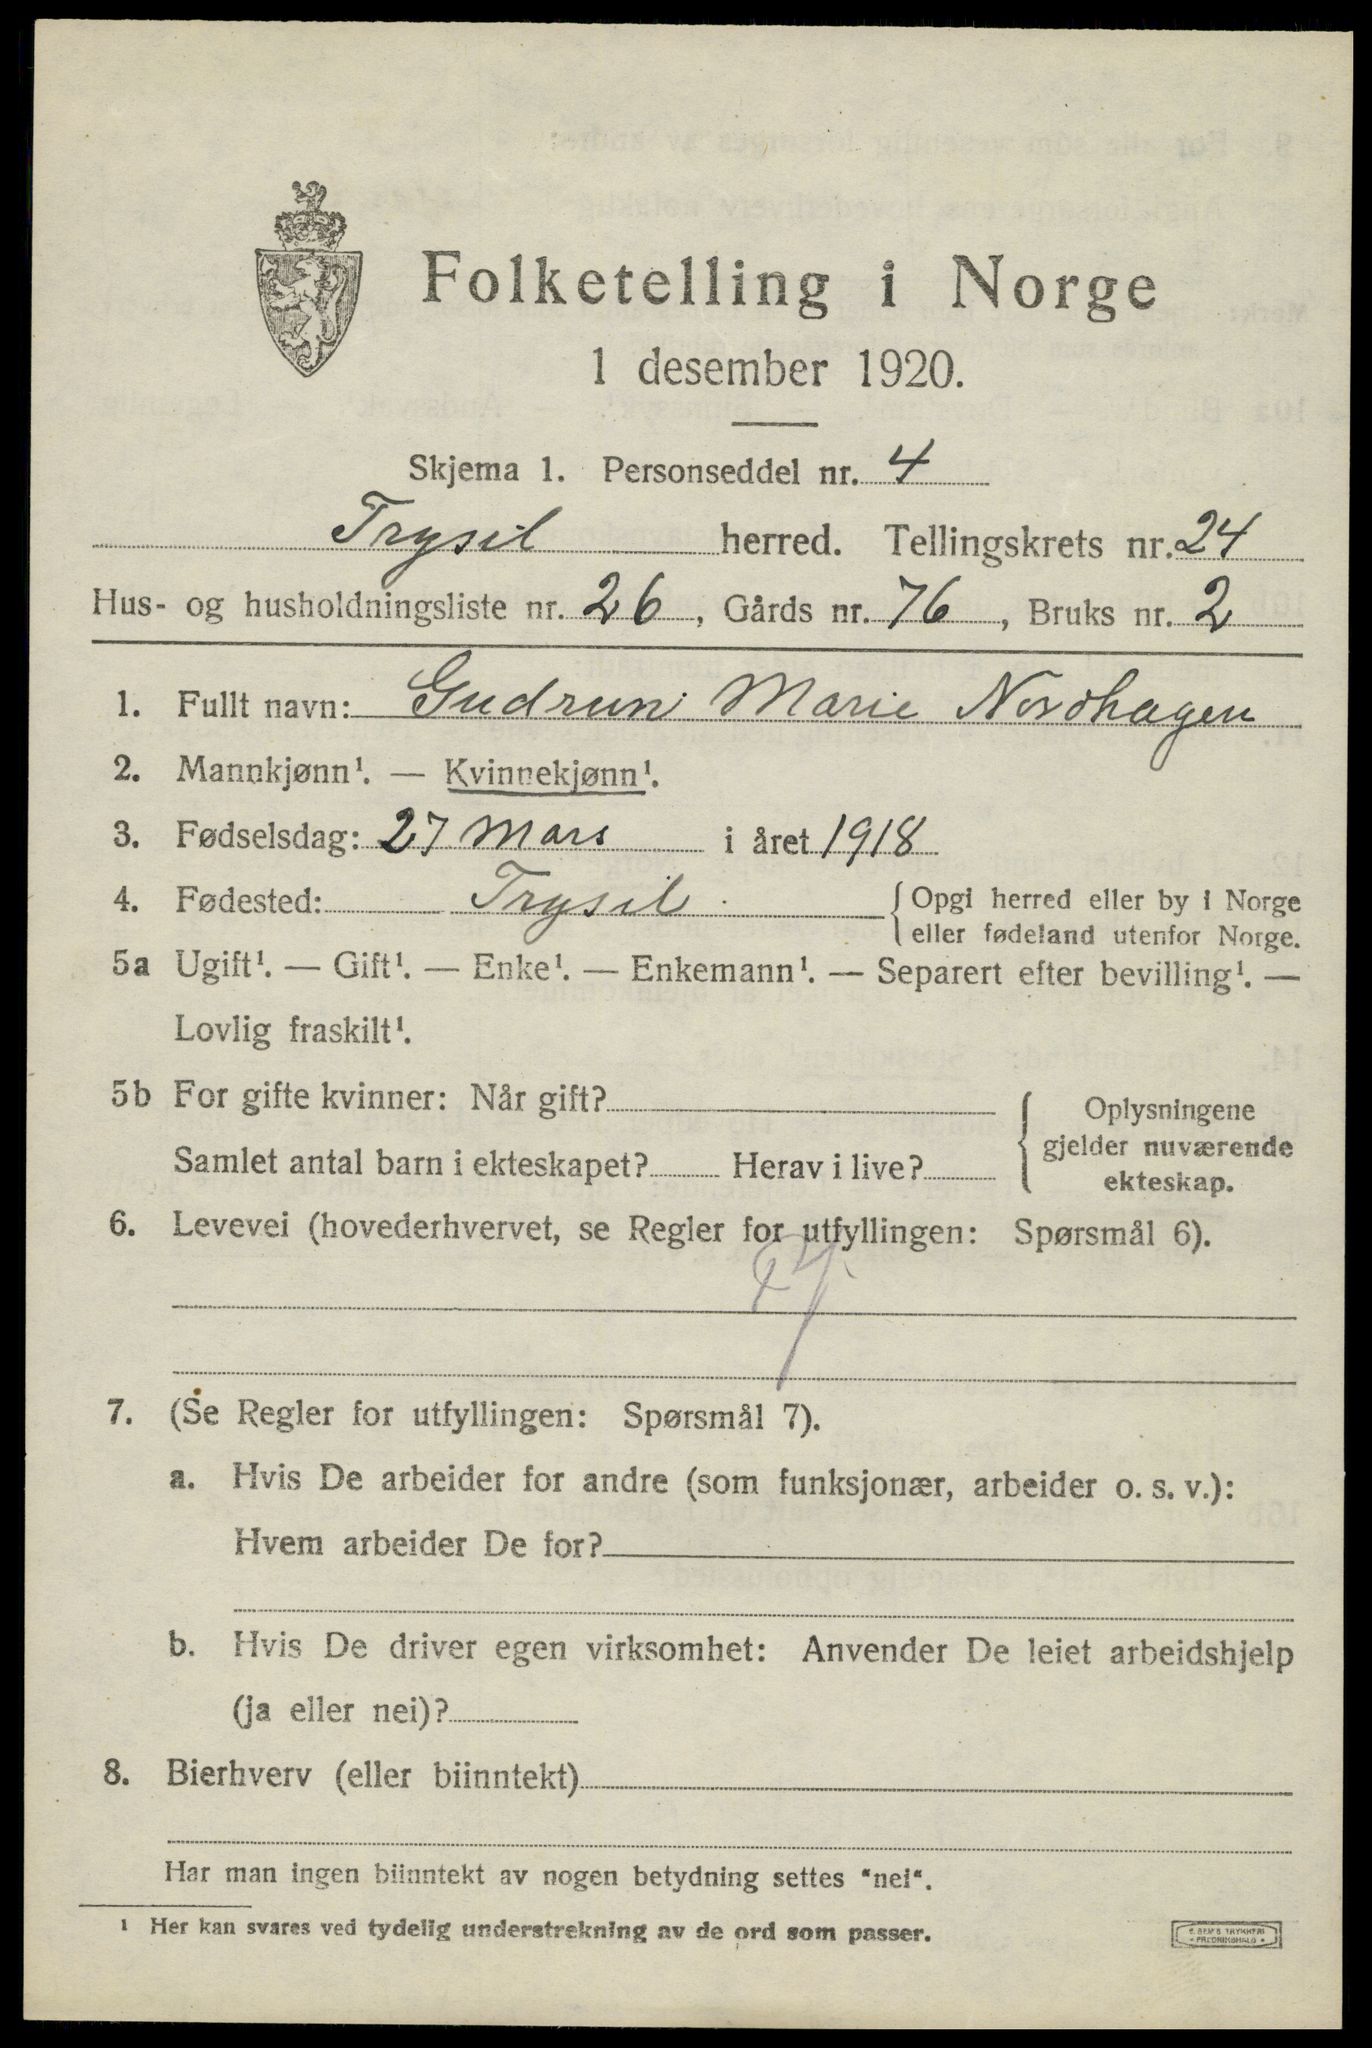 Folketelling i Norge
1 desember 1920.
Skjema 1. Personseddel nr. 4
Trysil herred. Tellingskrets nr. 24
Hus- og husholdningsliste nr. 26, Gårds nr. 76, Bruks nr. 2
1. Fullt navn: Gudrun Marie Nordhagen
2. Mannkjønn¹. — Kvinnekjønn¹.
3. Fødselsdag: 27 Mars i året 1918
4. Fødested: Trysil {Opgi herred eller by i Norge
eller fødeland utenfor Norge.
5a Ugift¹. — Gift¹. — Enke¹. — Enkemann¹. — Separert efter bevilling¹. —
Lovlig fraskilt¹.
5b For gifte kvinner: Når gift?
Samlet antal barn i ekteskapet? Herav i live?
{Oplysningene
gjelder nuværende
ekteskap.
6. Levevei (hovederhvervet, se Regler for utfyllingen: Spørsmål 6).
7. (Se Regler for utfyllingen: Spørsmål 7).
a. Hvis De arbeider for andre (som funksjonær, arbeider o. s. v.):
Hvem arbeider De for?
b. Hvis De driver egen virksomhet: Anvender De leiet arbeidshjelp
(ja eller nei)?
8. Bierhverv (eller biinntekt)
Har man ingen biinntekt av nogen betydning settes "nei".
¹ Her kan svares ved tydelig understrekning av de ord som passer.
TRYKKERI
FREDRIKSHALD